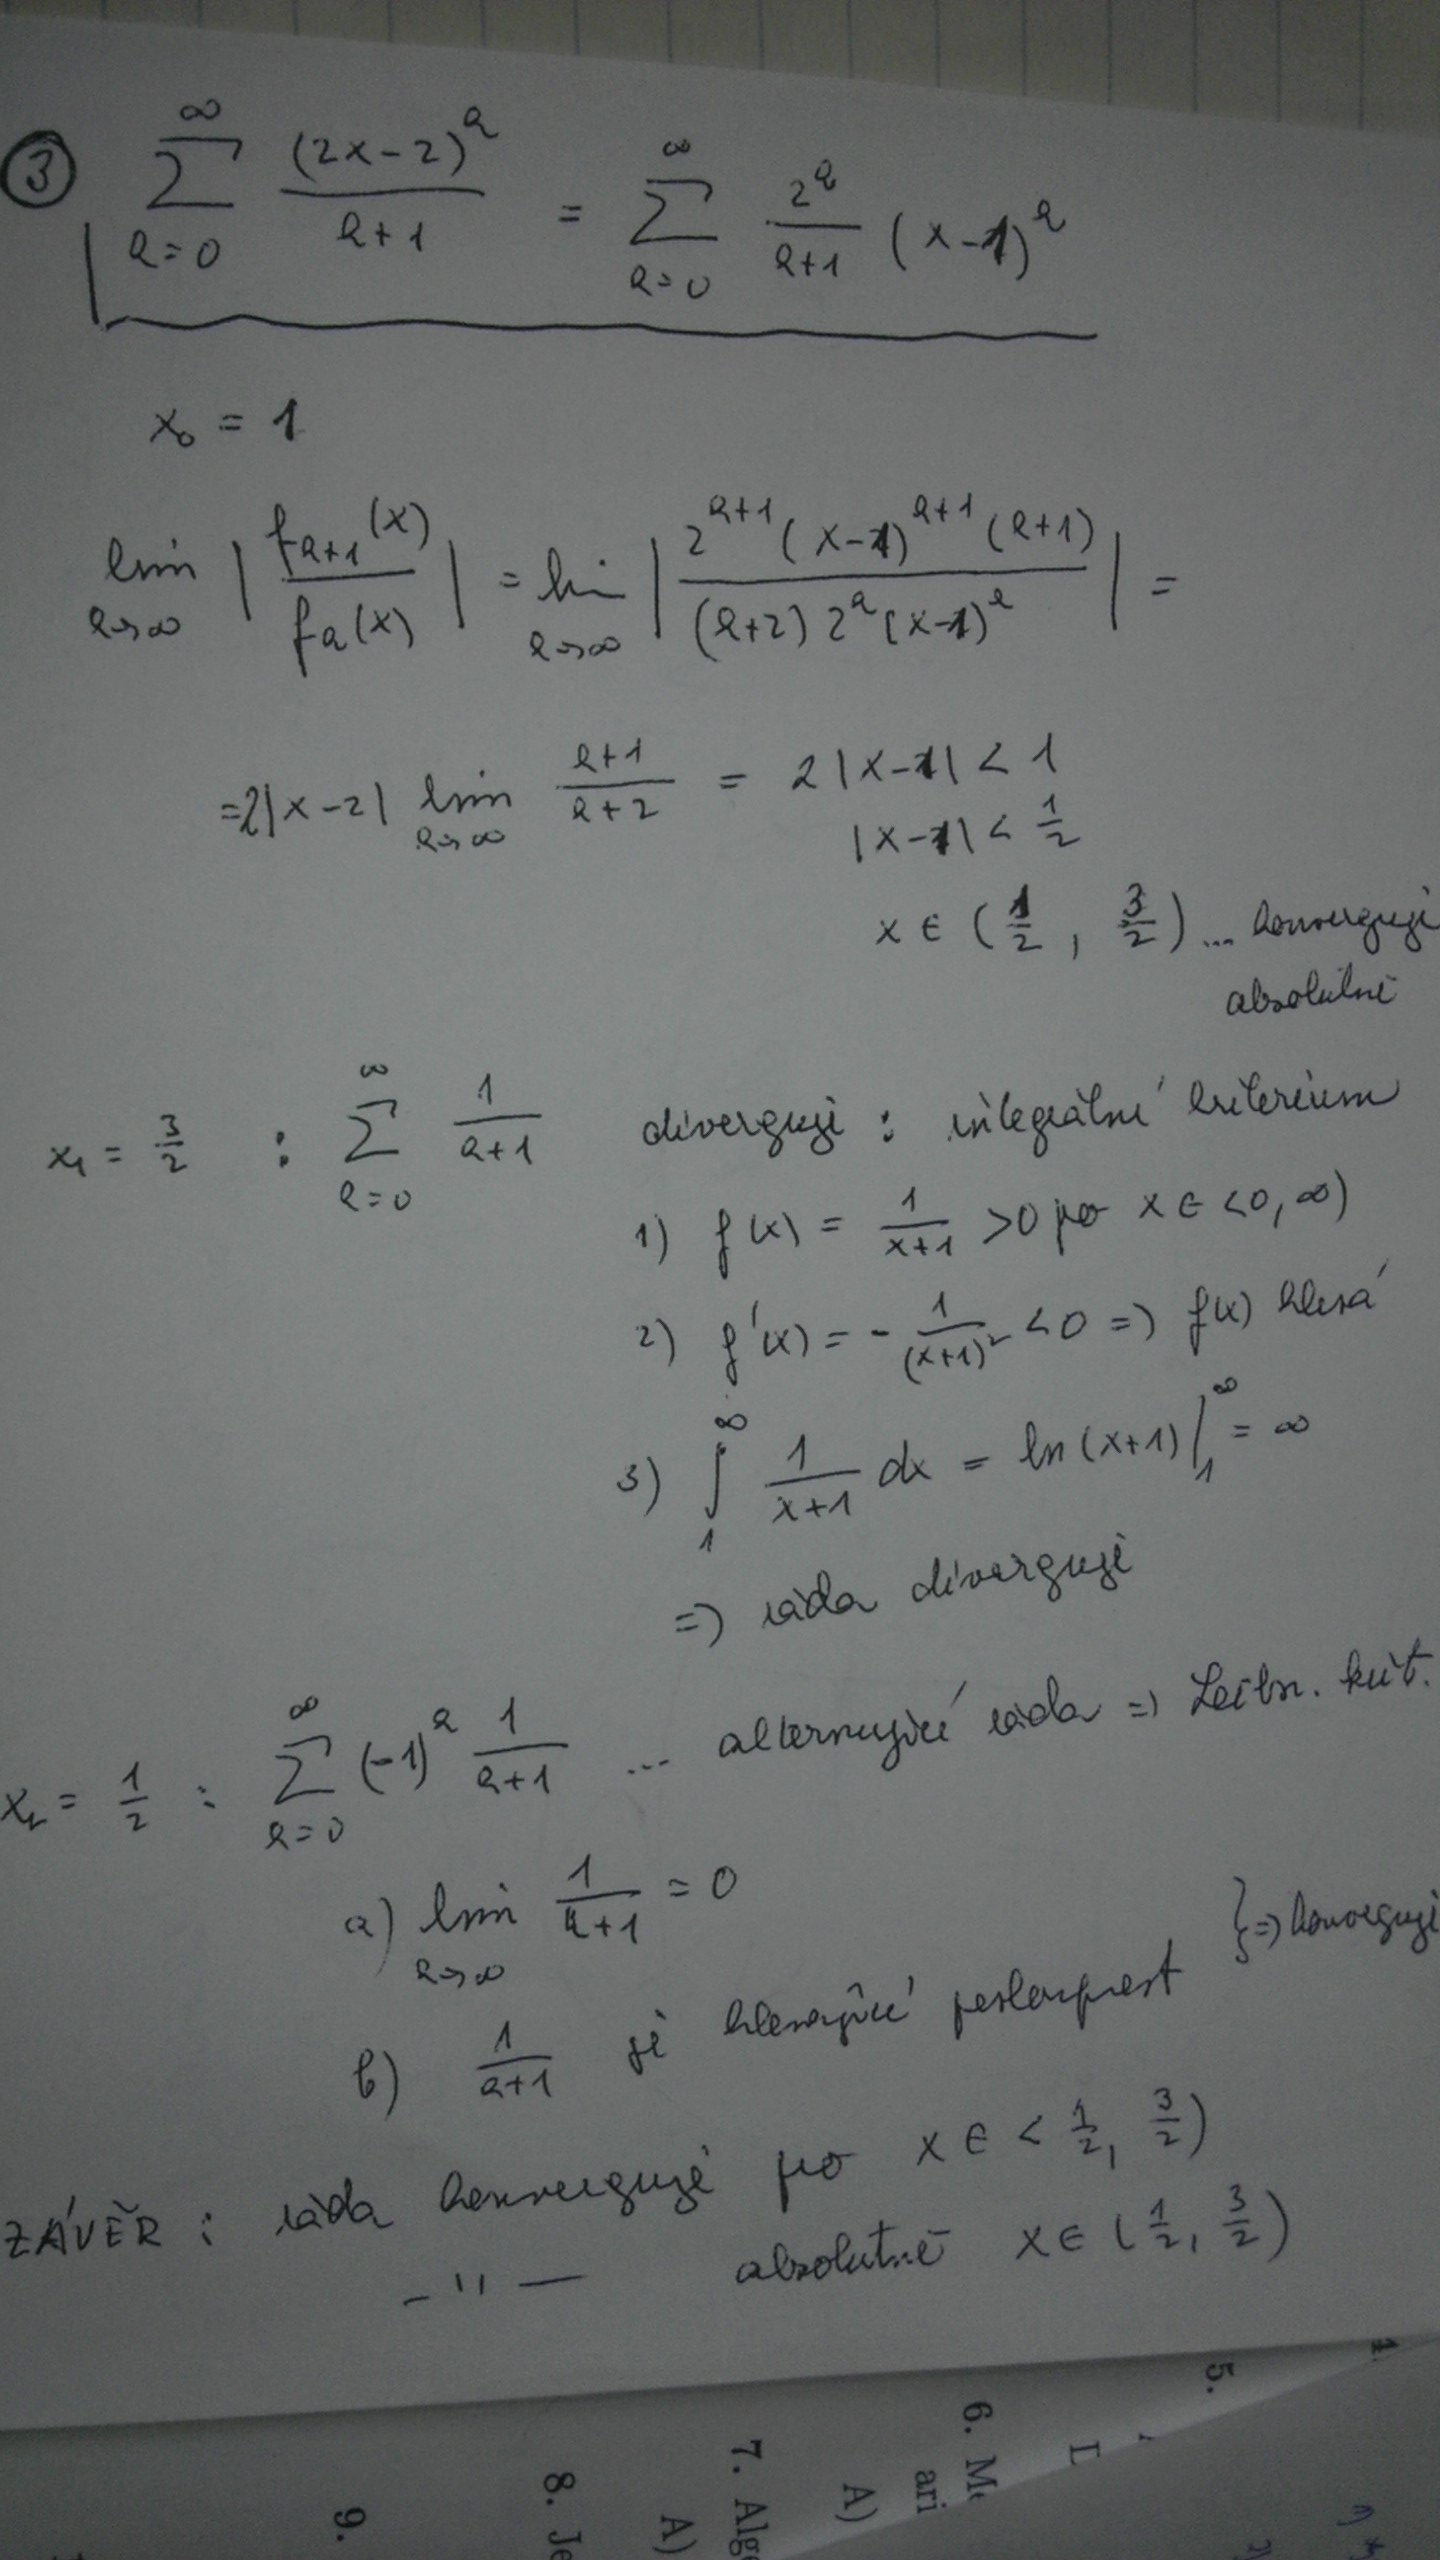 ③ ∞∑k=0 (2x-2)^k / k+1 = ∞∑k=0 2^k / k+1 (x-1)^k
x₀ = 1
lim k→∞ | f_{k+1}(x) / f_k(x) | = lim k→∞ | 2^{k+1} (x-1)^{k+1} (k+1) / (k+2) 2^k (x-1)^k | =
= 2|x-2| lim k→∞ k+1 / k+2 = 2|x-1| < 1
|x-1| < 1/2
x ∈ (1/2, 3/2) ... konverguje
absolutně
x₁ = 3/2 : ∞∑k=0 1 / k+1 diverguje : integrální kriterium
1) f(x) = 1 / x+1 > 0 pro x ∈ <0, ∞)
2) f'(x) = - 1 / (x+1)² < 0 => f(x) klesá
3) ∫₁^∞ 1 / x+1 dx = ln(x+1) |₁^∞ = ∞
=> řada diverguje
x₂ = 1/2 : ∞∑k=0 (-1)^k 1 / k+1 ... alternující řada => Leibn. krit.
a) lim k→∞ 1 / k+1 = 0
} => konverguje
b) 1 / k+1 je klesající posloupnost
ZÁVĚR : řada konverguje pro x ∈ < 1/2, 3/2)
- " — absolutně x ∈ (1/2, 3/2)
1.
5.
L
6. M
ari
A)
7. Alg
A)
8. Je
9.